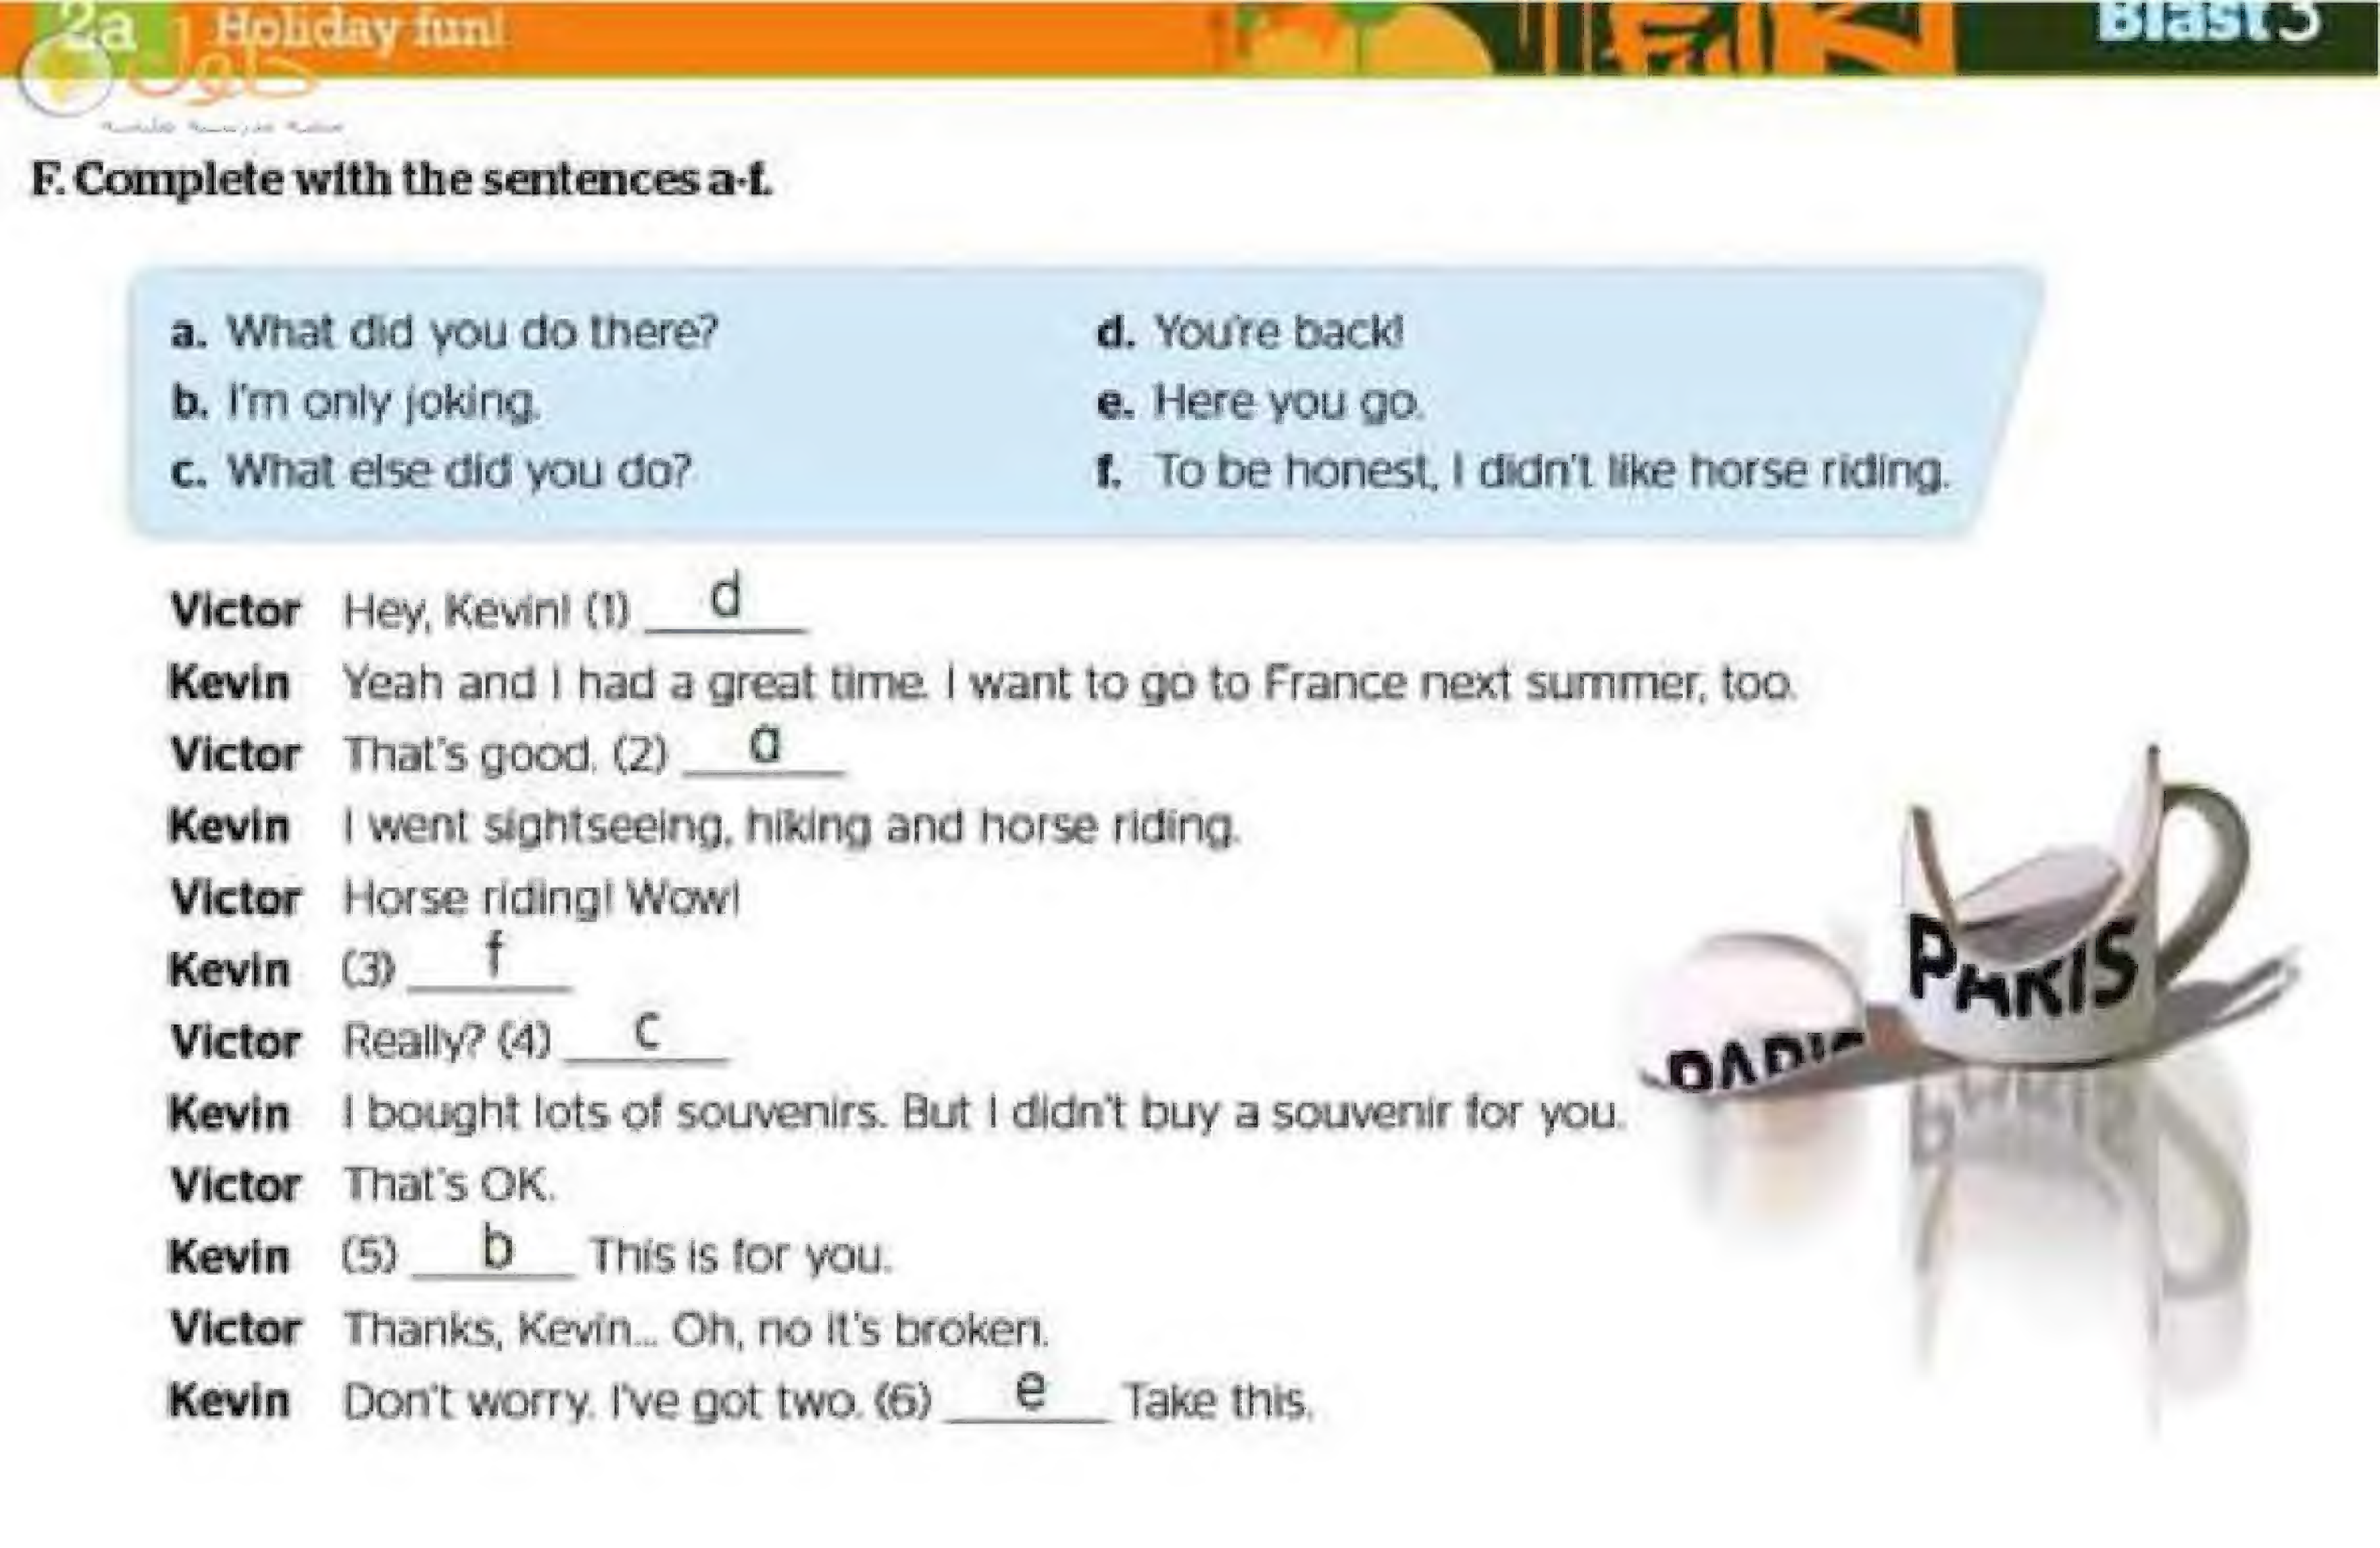 2a Holiday fun! Blast 3
حلول
F. Complete with the sentences a-f.
a. What did you do there?
b. I'm only joking.
c. What else did you do?
d. You're back!
e. Here you go.
f. To be honest, I didn't like horse riding.
Victor Hey, Kevin! (1) d
Kevin Yeah and I had a great time. I want to go to France next summer, too.
Victor That's good. (2) a
Kevin I went sightseeing, hiking and horse riding.
Victor Horse riding! Wow!
Kevin (3) f
Victor Really? (4) c
Kevin I bought lots of souvenirs. But I didn't buy a souvenir for you.
Victor That's OK.
Kevin (5) b This is for you.
Victor Thanks, Kevin... Oh, no it's broken.
Kevin Don't worry. I've got two. (6) e Take this.
PARIS
PARIS